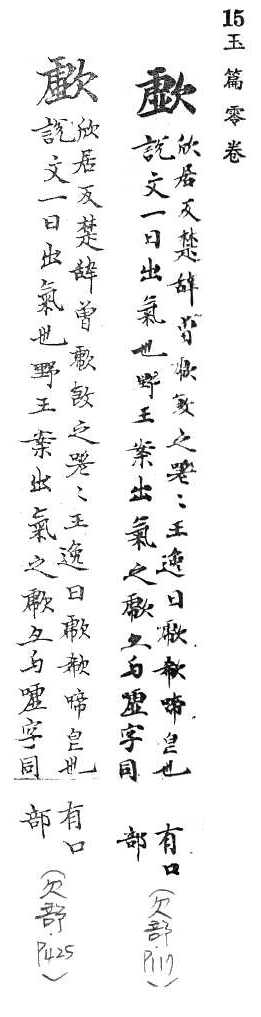 15玉篇零卷
歔
欣居反楚辭曾歔欷之嗟〻王逸曰歔欷啼皃也
說文一曰出氣也野王案出氣之歔亦与嘘字同
有口
部
(欠部.P117)
歔
欣居反楚辭曾歔欷之嗟〻王逸曰歔欷啼皃也
說文一曰出氣也野王案出氣之歔亦与嘘字同
有口
部
(欠部.P425)